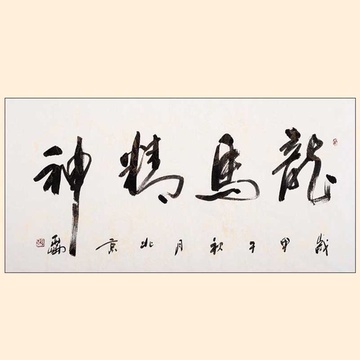 龍馬精神
歲甲午秋月北京